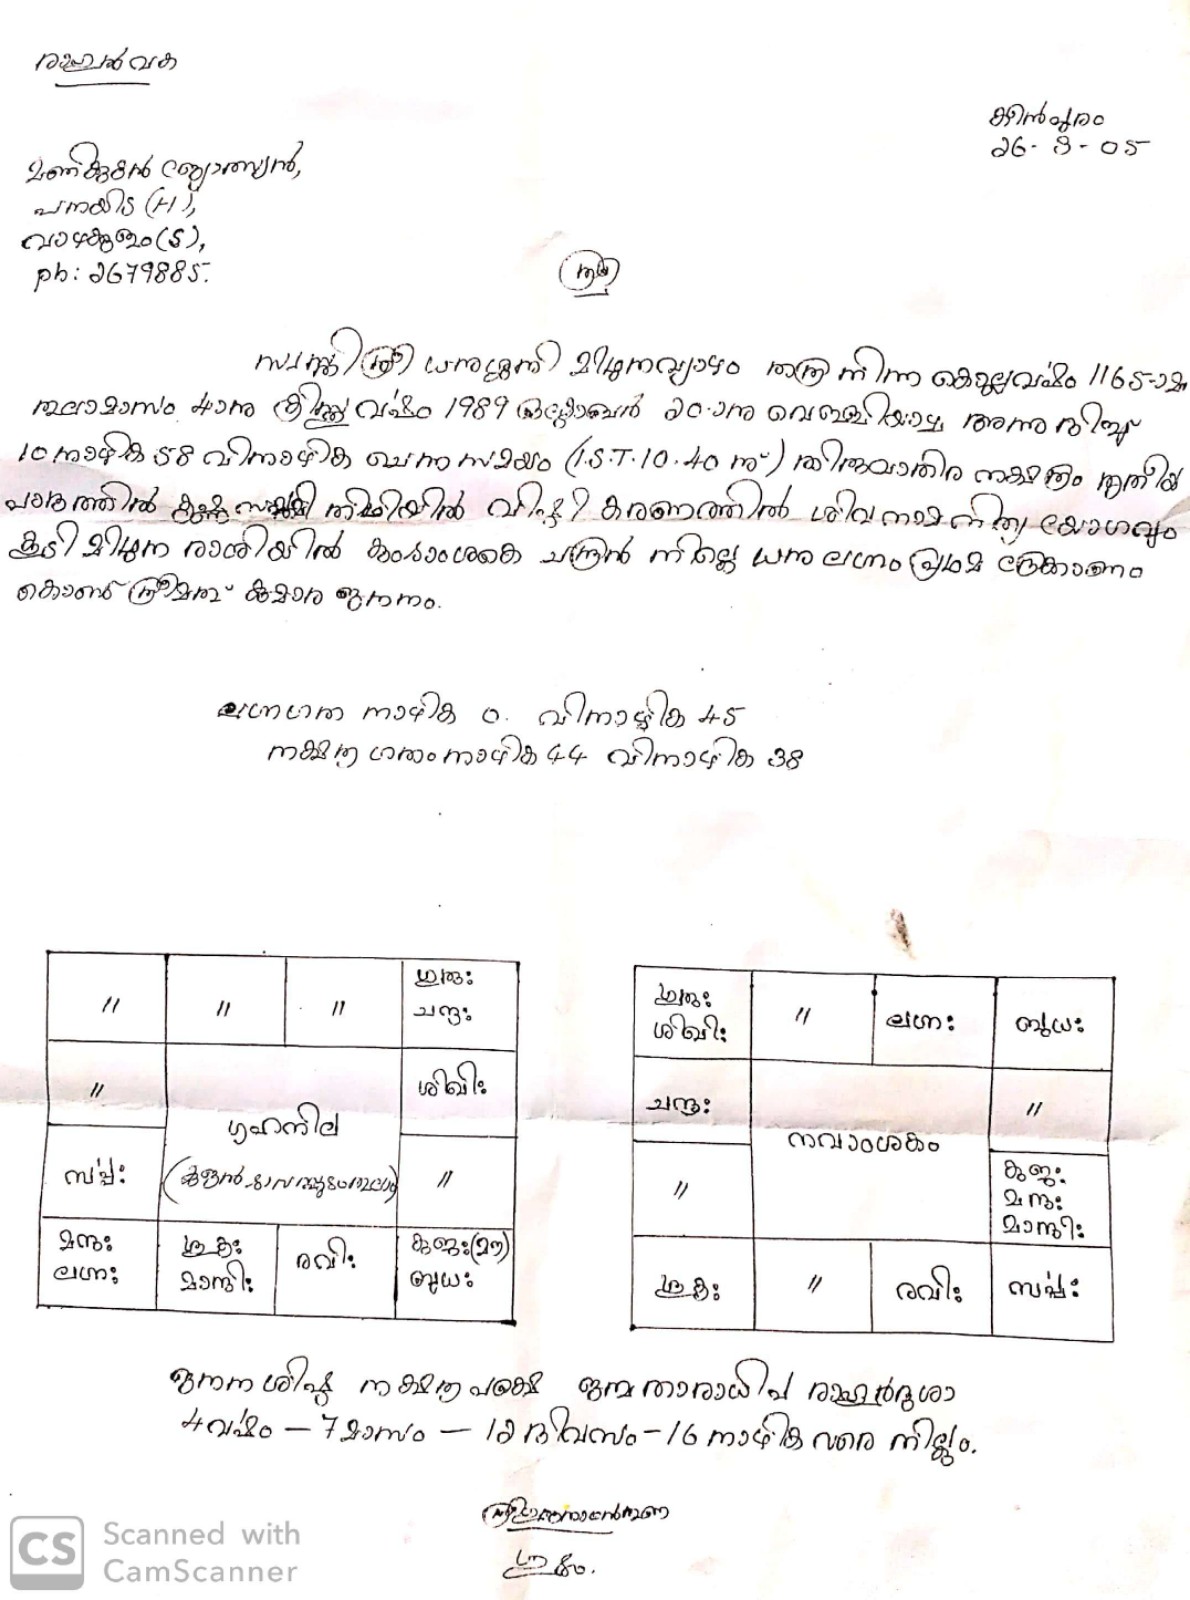 ക്കീൻപുരം
26-3-05
മണിക്കുട്ടൻ ജ്യോത്സ്യൻ,
പനയിട (H),
വാഴക്കുളം (S),
ph: 2679885.
ശ്രീ
സ്വസ്തിശ്രീ മിഥുനവ്യാഴം നിന്ന കൊല്ലവർഷം 1165-ാമ
തുലാമാസം 4ാനു ക്രിസ്തു വർഷം 1989 ഒക്ടോബർ 20ാനു വെള്ളിയാഴ്ച അന്നുദിച്ച്
10 നാഴിക 58 വിനാഴിക ചെന്ന സമയം (I.S.T. 10.40 ന്) തിരുവാതിര നക്ഷത്രം തൃതീയ
പാദത്തിൽ കൃഷ്ണ സപ്തമി തിഥിയിൽ വിഷ്ടി കരണത്തിൽ ശിവനാമനിത്യ യോഗവും
കൂടി മിഥുന രാശിയിൽ കുംഭാംശകെ ചന്ദ്രൻ നില്ക്കെ ധനു ലഗ്നം പ്രഥമ ദ്രേക്കാണം
കൊണ്ട് ശ്രീമത് കുമാര ജനനം.
ലഗ്നഗത നാഴിക 0. വിനാഴിക 45
നക്ഷത്ര ഗതം നാഴിക 44 വിനാഴിക 38
" " " ഗുരുഃ ചന്ദ്രഃ
" ശിഖിഃ
ഗ്രഹനില
സർപ്പഃ "
മന്ദഃ ലഗ്നഃ ശുക്രഃ മാന്ദിഃ രവിഃ കുജഃ (മൗ) ബുധഃ
ഗുരുഃ ശിഖിഃ " ലഗ്നഃ ബുധഃ
ചന്ദ്രഃ "
നവാംശകം
" കുജഃ മന്ദഃ മാന്ദിഃ
ശുക്രഃ " രവിഃ സർപ്പഃ
ജനന ശിഷ്ട നക്ഷത്ര പക്ഷെ ജന്മതാരാധിപ രാഹുർദശാ
4 വർഷം – 7 മാസം – 12 ദിവസം – 16 നാഴിക വരെ നില്ക്കും.
ശുഭം.
CS Scanned with
CamScanner